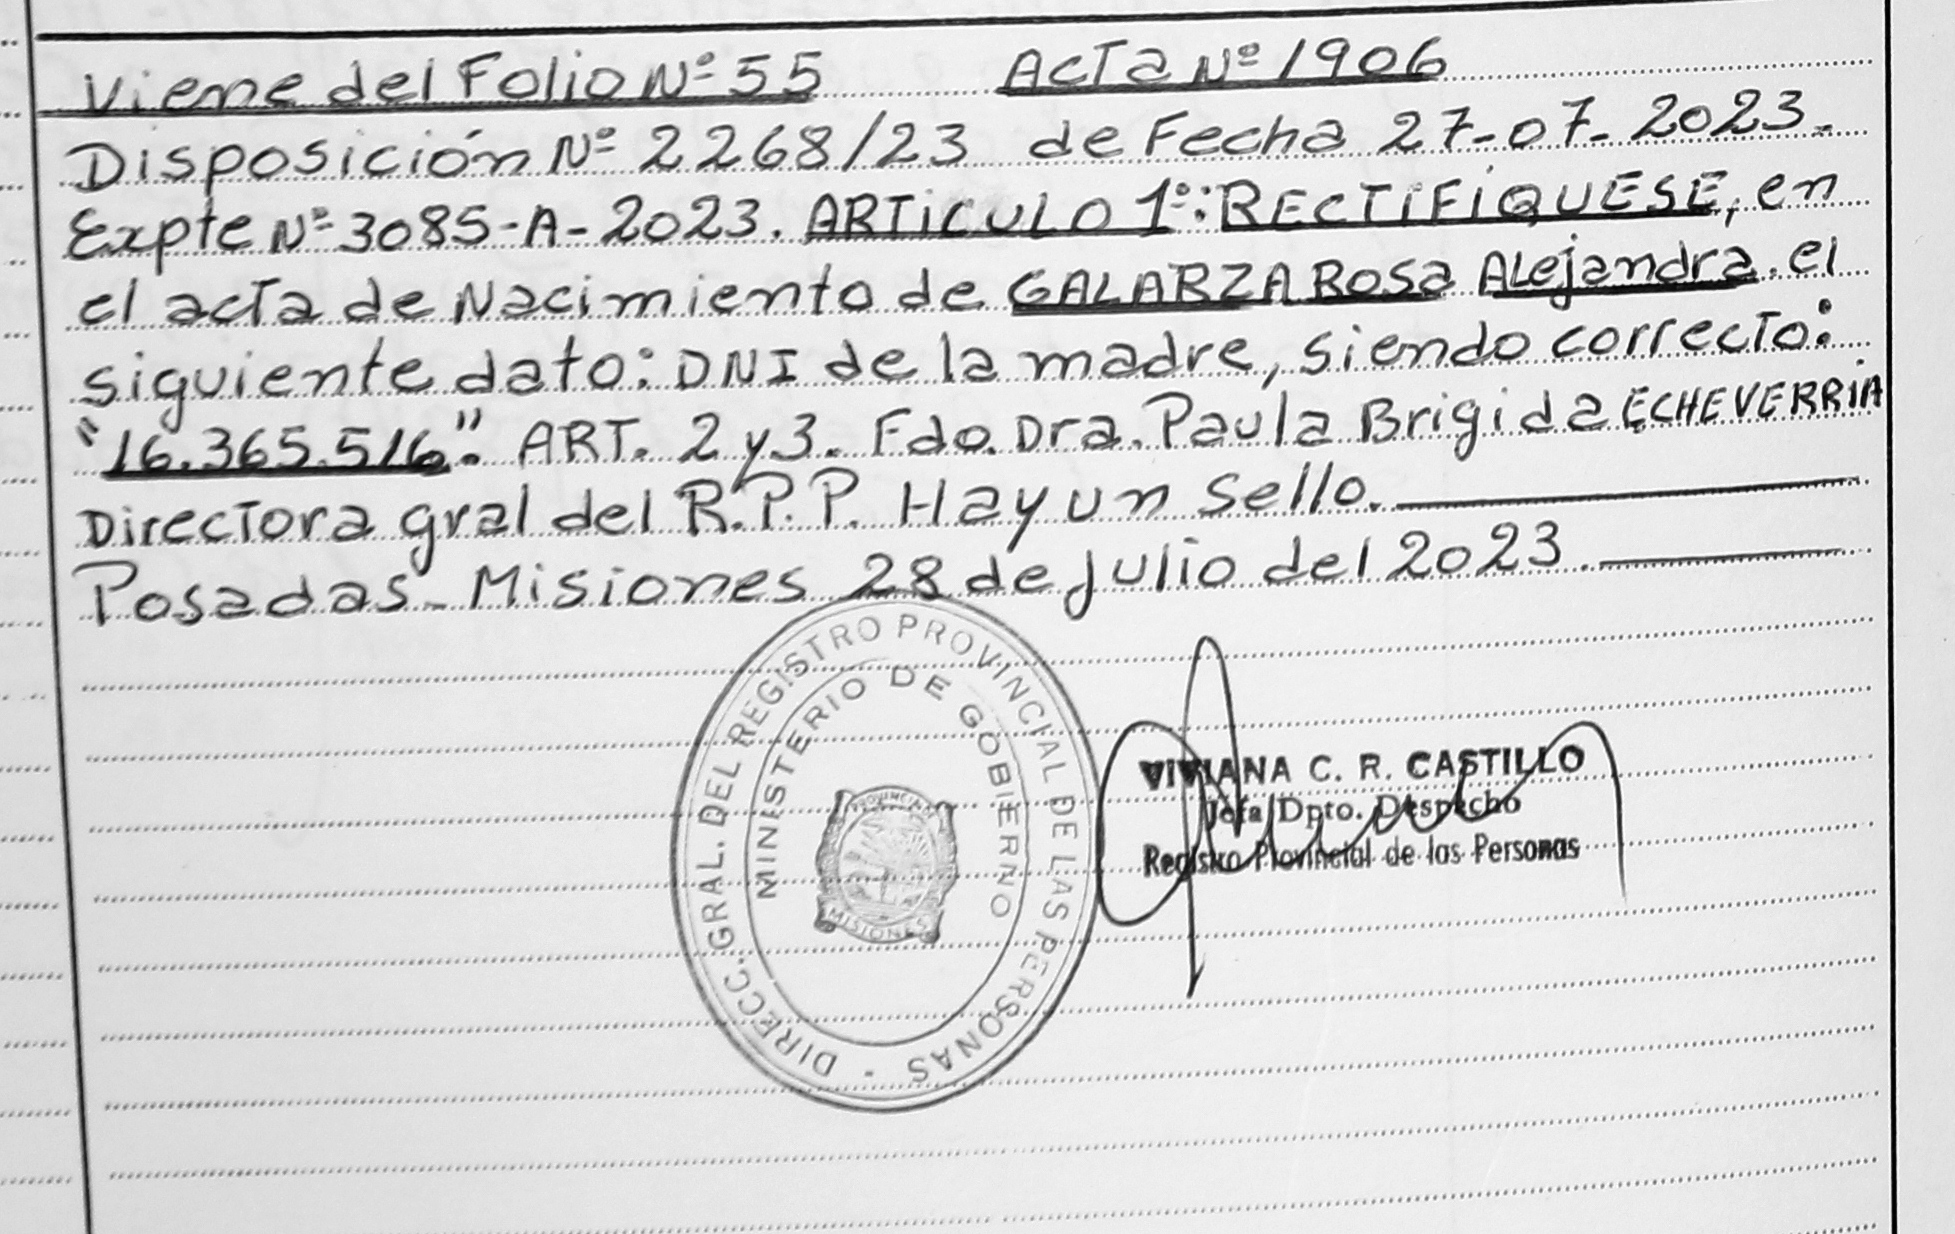 Viene del Folio Nº 55 Acta Nº 1906
Disposición Nº 2268/23 de Fecha 27-07-2023.
Expte Nº 3085-A-2023. ARTiCULO 1º: RECTiFiQUESE, en
el acta de Nacimiento de GALARZA ROSa ALejandra. el
siguiente dato: DNI de la madre, siendo correcto:
"16.365.516". ART. 2 y 3. Fdo. Dra. Paula Brigida ECHEVERRiA
Directora gral del R.P.P. Hay un Sello.
Posadas - Misiones 28 de julio del 2023.
DIRECC. GRAL. DEL REGISTRO PROVINCIAL DE LAS PERSONAS -
MINISTERIO DE GOBIERNO
MISIONES
VIVIANA C. R. CASTILLO
Jefa Dpto. Despacho
Registro Provincial de las Personas